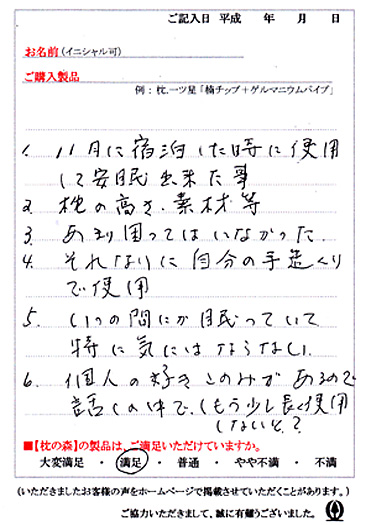 ご記入日 平成 年 月 日
お名前(イニシャル可)
ご購入製品
例:枕.一ツ星「楠チップ+ゲルマニウムパイプ」
1. 11月に宿泊した時に使用
して安眠出来た事
2. 枕の高さ.素材等
3. あまり困ってはいなかった.
4. それなりに自分の手造くり
で使用
5. いつの間にか眠っていて
特に気にはならない.
6. 個人の好きこのみがあるので
話しの中で.(もう少し長く使用
しないと.?
■【枕の森】の製品は、ご満足いただけていますか。
大変満足 ・ 満足 ・ 普通 ・ やや不満 ・ 不満
(いただきましたお客様の声をホームページで掲載させていただくことがあります。)
ご協力いただきまして、誠に有難うございました。